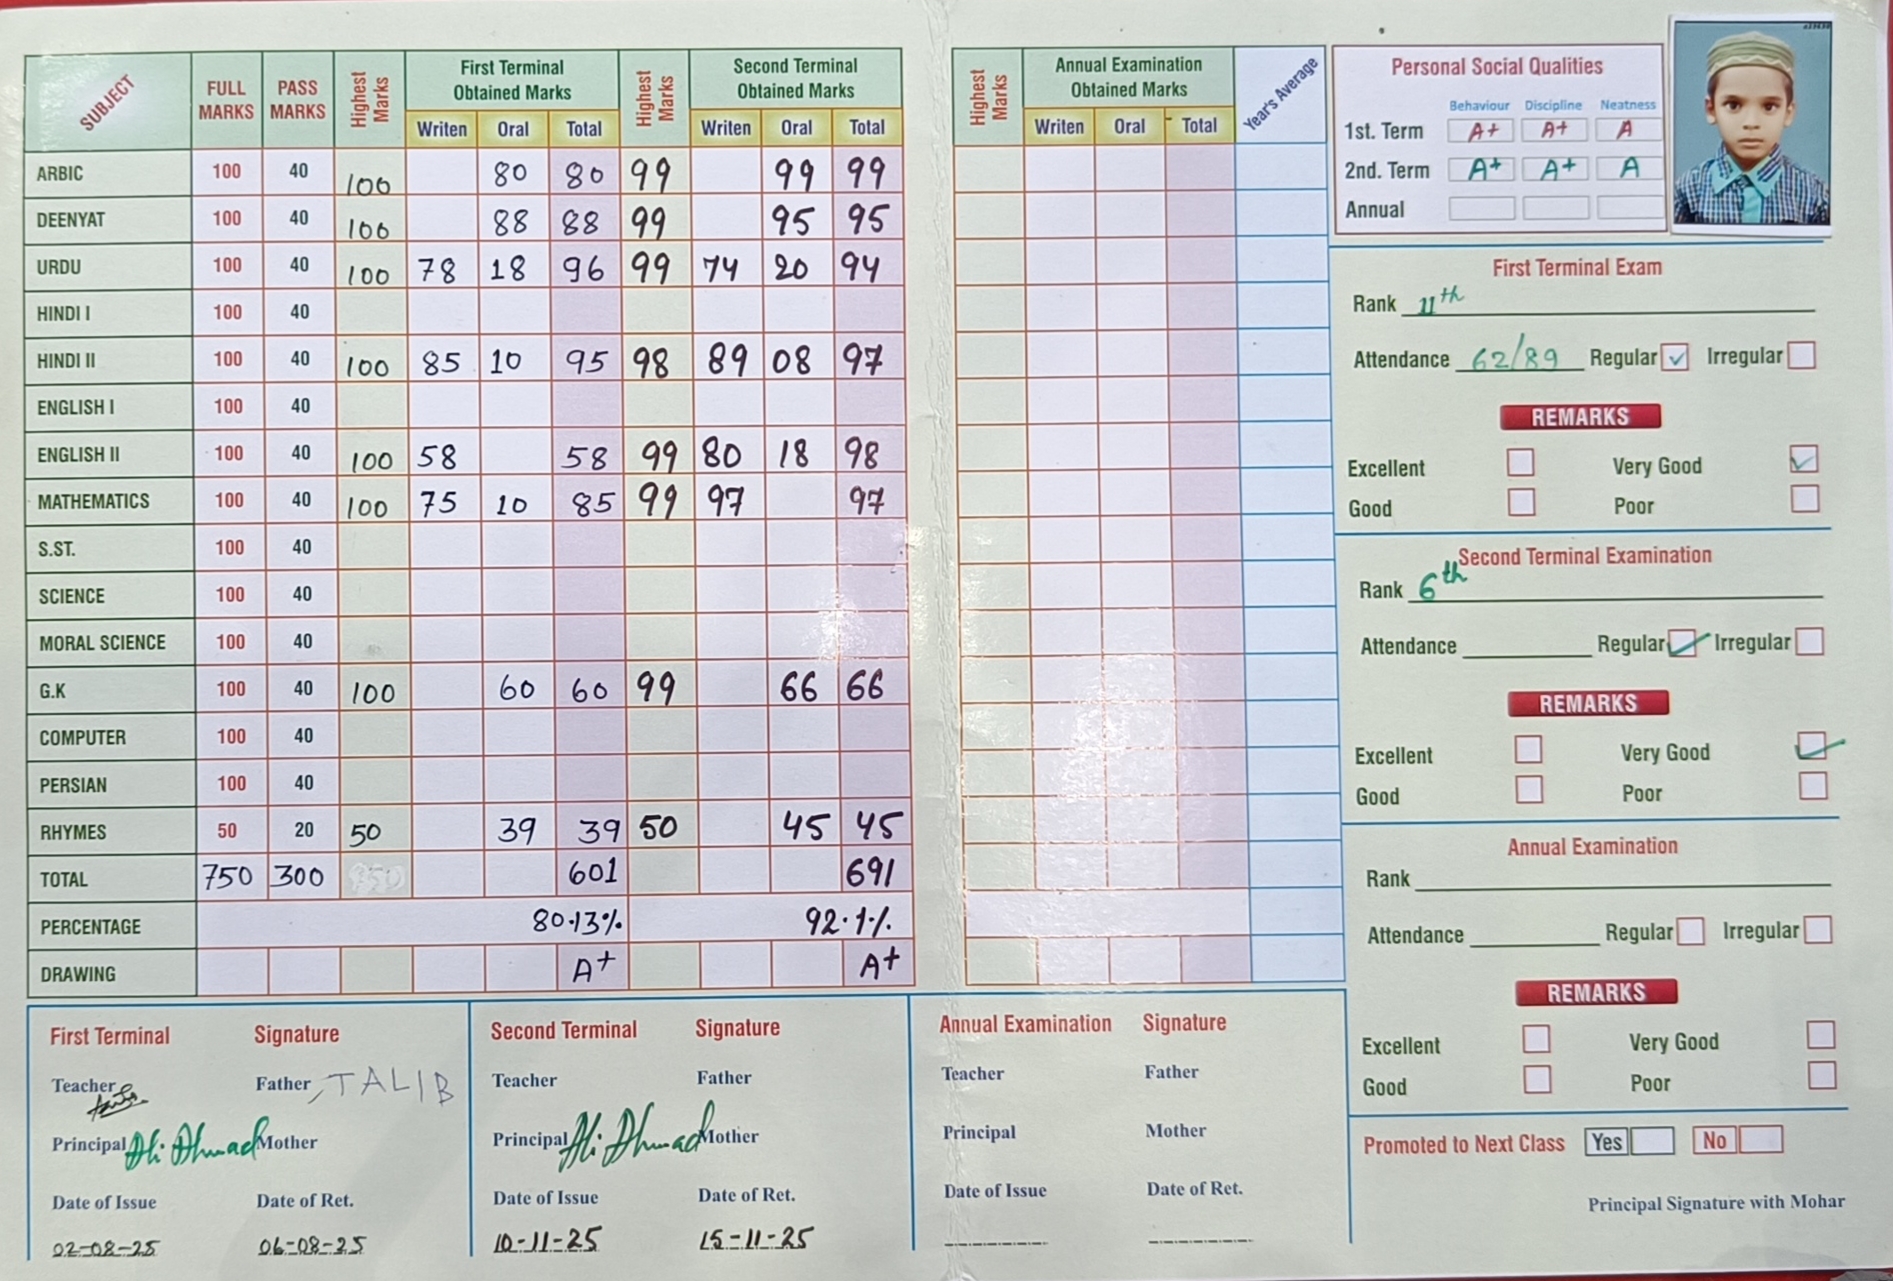 SUBJECT FULL MARKS PASS MARKS Highest Marks First Terminal Obtained Marks Highest Marks Second Terminal Obtained Marks
Writen Oral Total Writen Oral Total
ARBIC 100 40 100 80 80 99 99 99
DEENYAT 100 40 100 88 88 99 95 95
URDU 100 40 100 78 18 96 99 74 20 94
HINDI I 100 40
HINDI II 100 40 100 85 10 95 98 89 08 97
ENGLISH I 100 40
ENGLISH II 100 40 100 58 58 99 80 18 98
MATHEMATICS 100 40 100 75 10 85 99 97 97
S.ST. 100 40
SCIENCE 100 40
MORAL SCIENCE 100 40
G.K 100 40 100 60 60 99 66 66
COMPUTER 100 40
PERSIAN 100 40
RHYMES 50 20 50 39 39 50 45 45
TOTAL 750 300 601 691
PERCENTAGE 80.13% 92.1%
DRAWING A+ A+
Highest Marks Annual Examination Obtained Marks Year's Average
Writen Oral Total
Personal Social Qualities
Behaviour Discipline Neatness
1st. Term A+ A+ A
2nd. Term A+ A+ A
Annual
First Terminal Exam
Rank 11th
Attendance 62/89 Regular ✓ Irregular
REMARKS
Excellent Very Good ✓
Good Poor
Second Terminal Examination
Rank 6th
Attendance Regular ✓ Irregular
REMARKS
Excellent Very Good ✓
Good Poor
Annual Examination
Rank
Attendance Regular Irregular
REMARKS
Excellent Very Good
Good Poor
Promoted to Next Class Yes No
Principal Signature with Mohar
First Terminal Signature
Teacher Father TALIB
Principal Ali Ahmad Mother
Date of Issue Date of Ret.
02-08-25 06-08-25
Second Terminal Signature
Teacher Father
Principal Ali Ahmad Mother
Date of Issue Date of Ret.
10-11-25 15-11-25
Annual Examination Signature
Teacher Father
Principal Mother
Date of Issue Date of Ret.